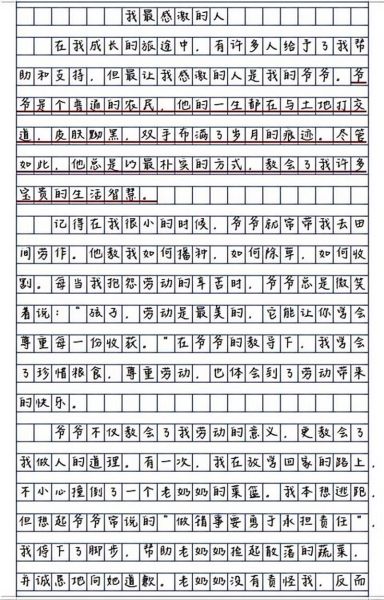 我最感激的人
在我成长的旅途中，有许多人给予了我帮
助和支持，但最让我感激的人是我的爷爷。爷
爷是个普通的农民，他的一生都在与土地打交
道，皮肤黝黑，双手布满了岁月的痕迹。尽管
如此，他总是以最朴实的方式，教会了我许多
宝贵的生活智慧。
记得在我很小的时候，爷爷就常带我去田
间劳作。他教我如何播种，如何除草，如何收
割。每当我抱怨劳动的辛苦时，爷爷总是微笑
着说：“孩子，劳动是最美的，它能让你学会
尊重每一份收获。”在爷爷的教导下，我学会
了珍惜粮食，尊重劳动，也体会到了劳动带来
的快乐。
爷爷不仅教会了我劳动的意义，更教会了
我做人的道理。有一次，我在放学回家的路上，
不小心撞倒了一个老奶奶的菜篮。我本想逃跑，
但想起爷爷常说的“做错事要勇于承担责任”，
我停下了脚步，帮助老奶奶捡起散落的蔬菜，
并诚恳地向她道歉。老奶奶没有责怪我，反而